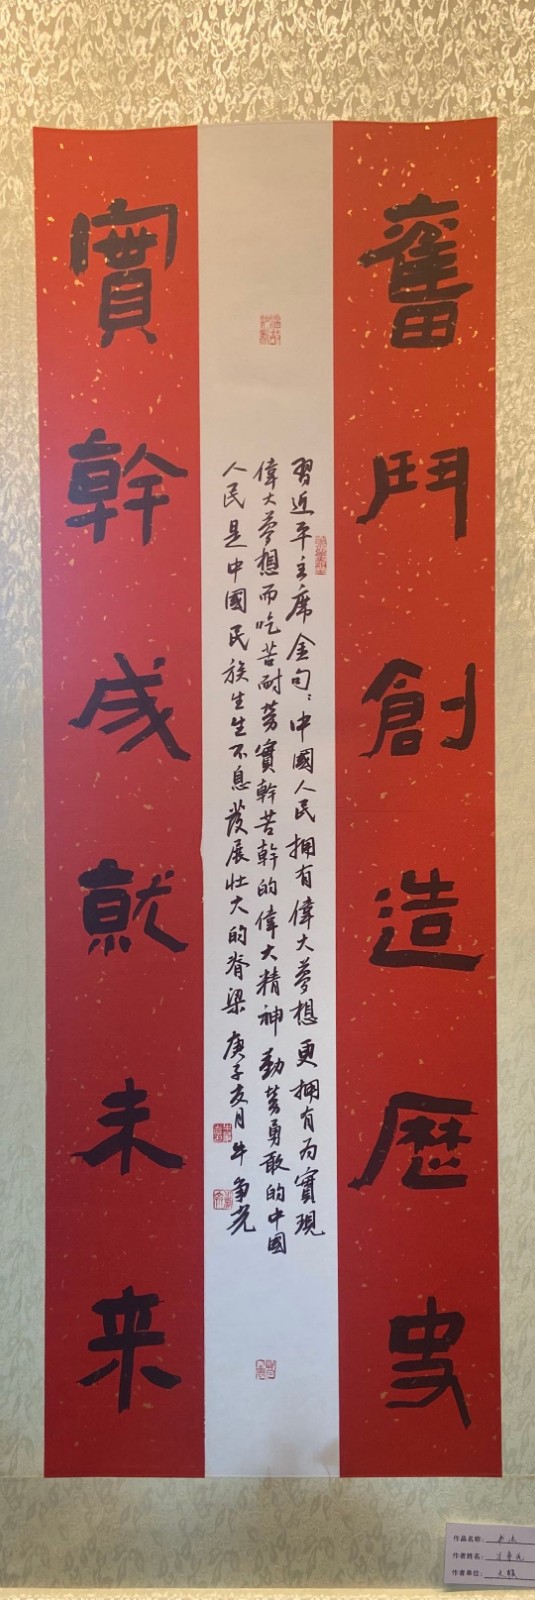 奮鬥創造歷史
習近平主席金句：中國人民擁有偉大夢想更擁有为實現
偉大夢想而吃苦耐勞實幹苦幹的偉大精神勤勞勇敢的中國
人民是中國民族生生不息發展壯大的脊梁 庚子友月牛争光
實幹成就未来
作品名称：
作者姓名：牛争光
作者单位：